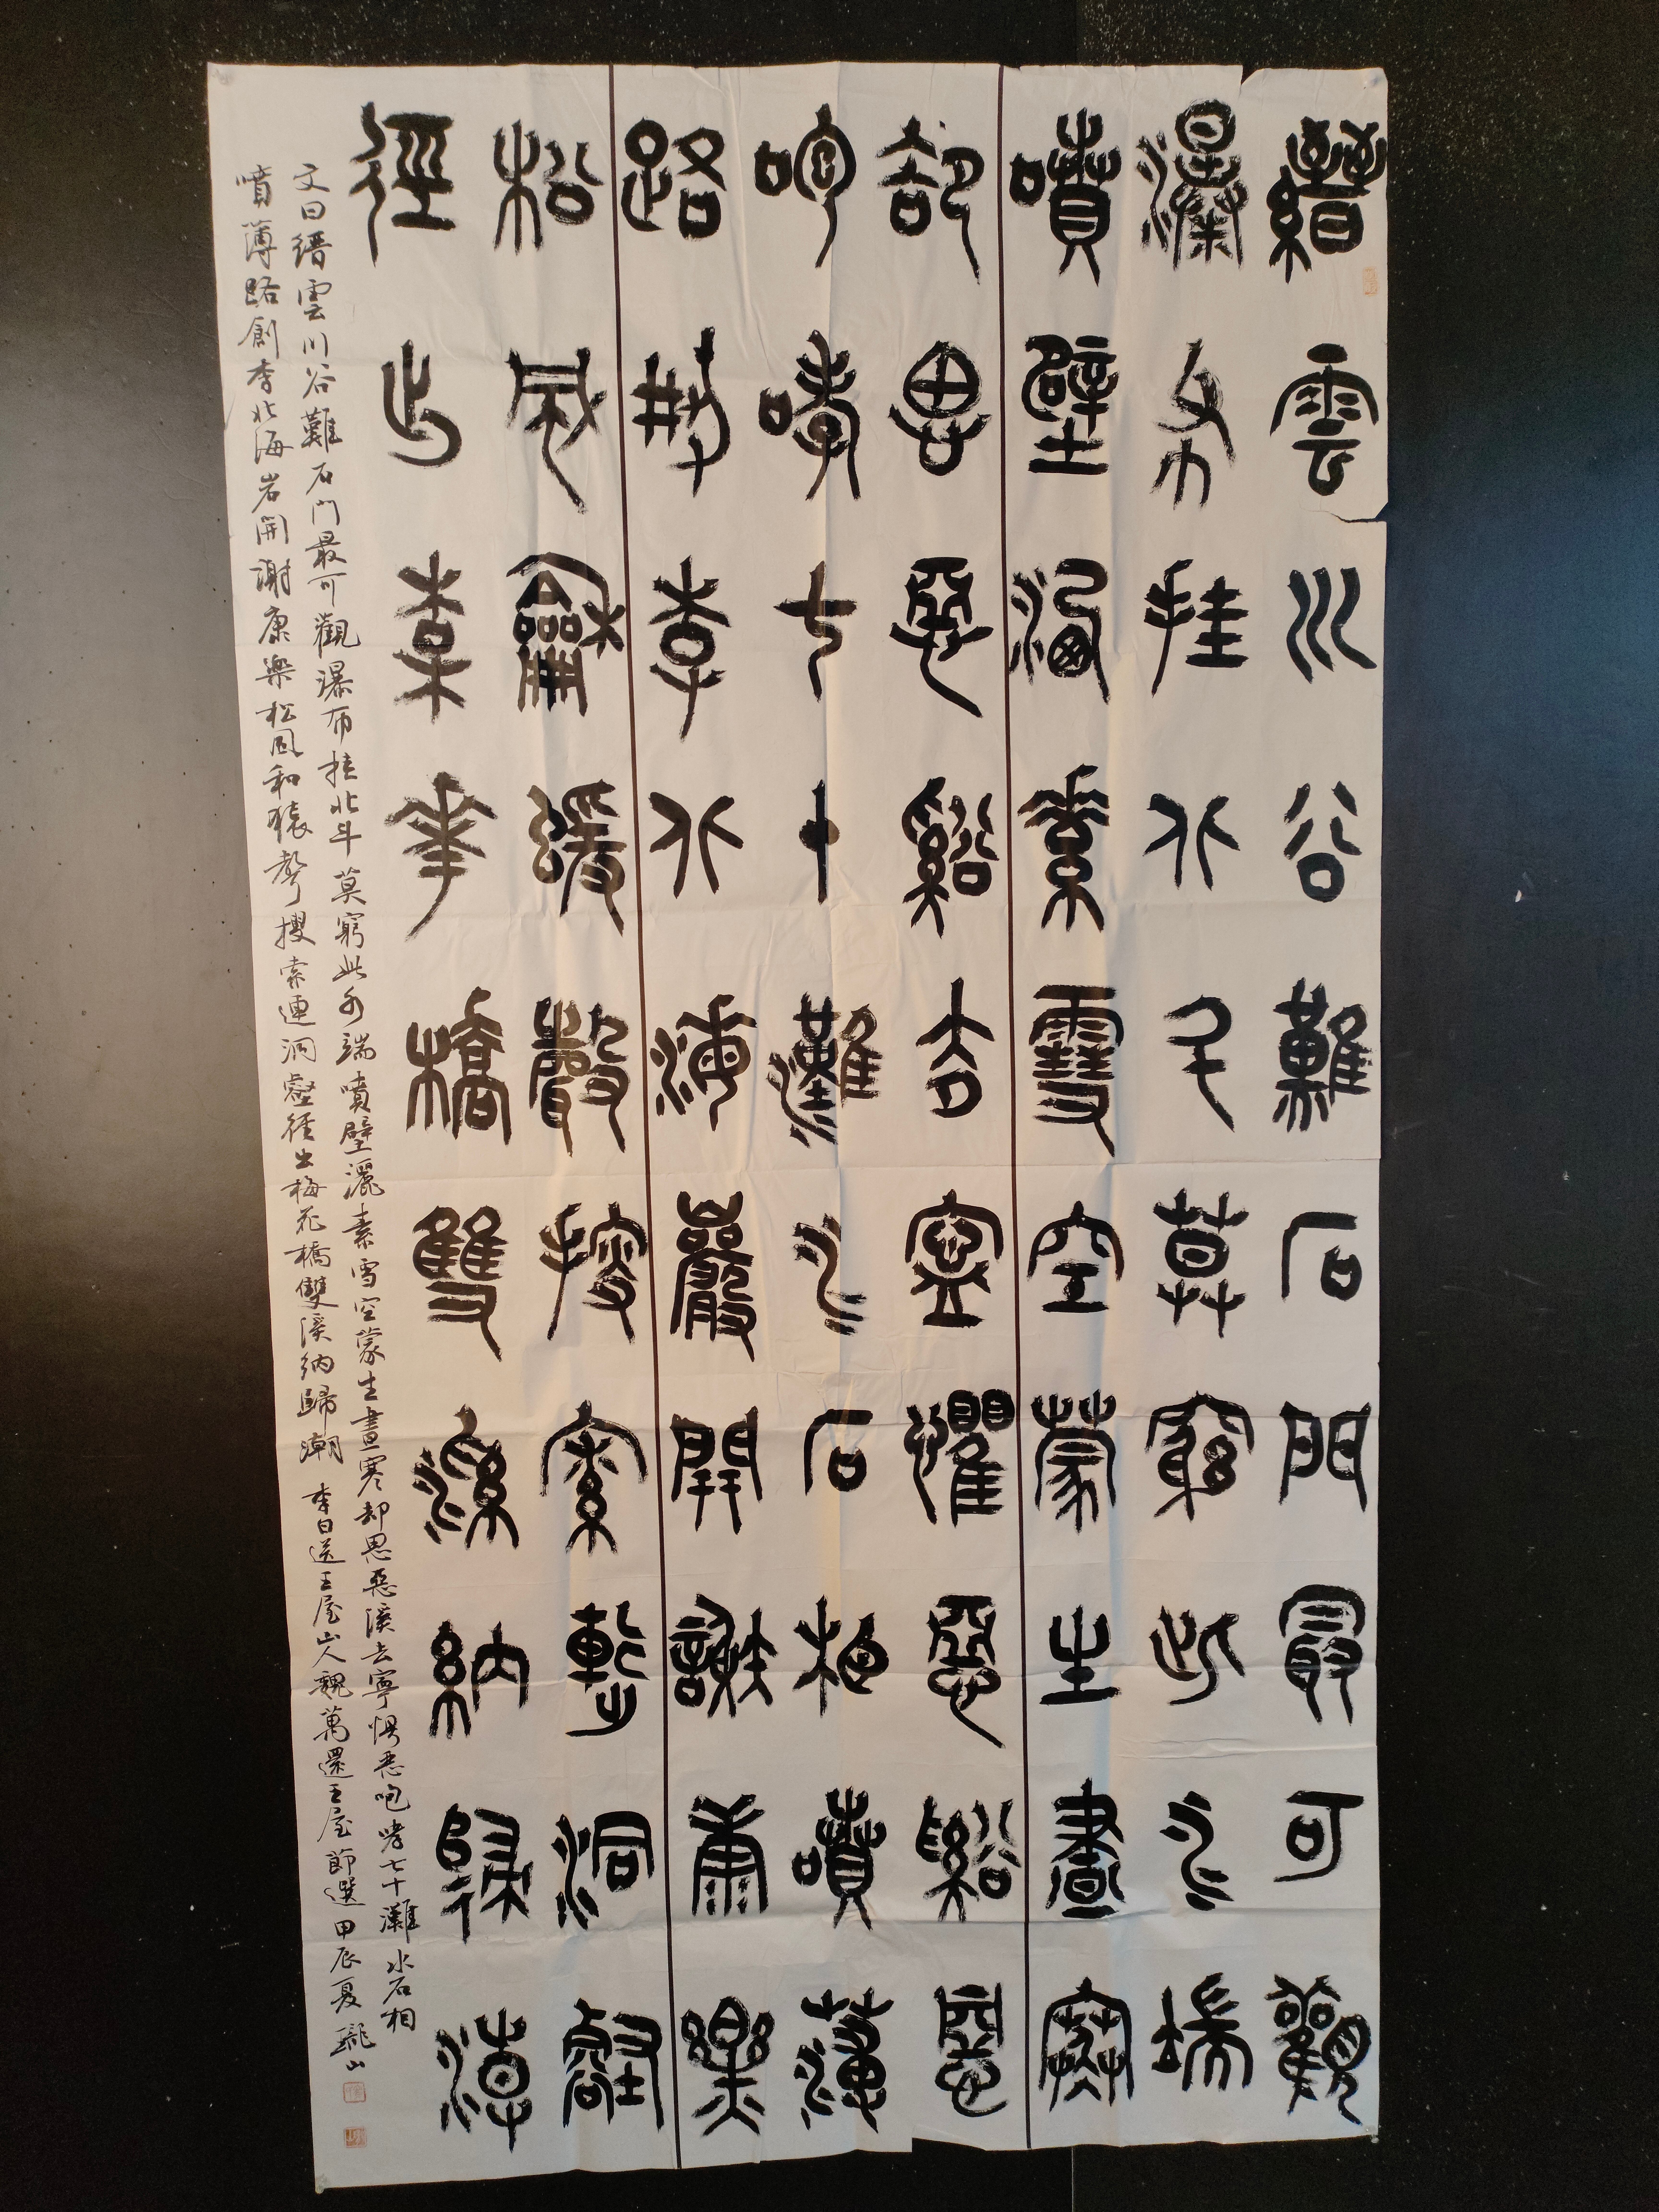 縉雲川谷難石門最可觀
瀑布挂北斗莫窮此水端
噴壁灑素雪空蒙生晝寒
却思惡谿去寧懼惡谿惡
咆哮七十灘水石相噴薄
路創李北海巖開謝康樂
松風龢猨聲搜索連洞壑
徑出梅華橋雙溪納歸潮
文曰縉雲川谷難石門最可觀瀑布挂北斗莫窮此水端噴壁灑素雪空蒙生晝寒却思惡溪去寧惧惡咆哮七十灘水石相
噴薄路創李北海岩開謝康樂松風和猿聲搜索連洞壑徑出梅花橋雙溪納歸潮 李白送王屋山人魏萬還王屋節選甲辰夏山